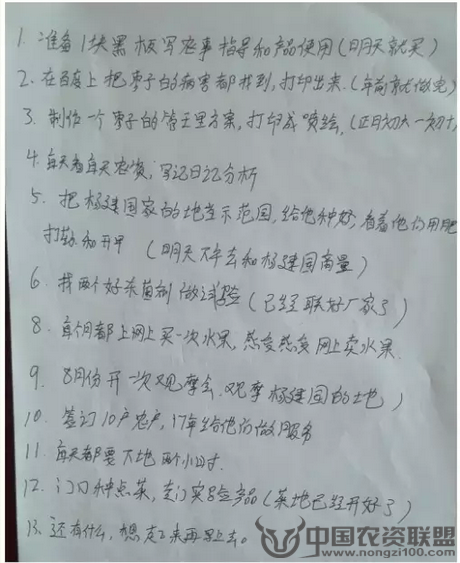 1. 准备1块黑板写农事指导和产品使用(明天就买)
2. 在百度上把枣子的病害都找到,打印出来.(年前就做完)
3. 制作一个枣子的管理方案,打印成喷绘,(正月初六一初十,
4. 每天看每天农资,写记日记分析
5. 把杨建国家的地当示范园,给他种好,看着他们用肥
打药和开甲 (明天下午去和杨建国商量)
6. 找两个好杀菌剂做试验 (已经联好厂家了)
8. 每个月都上网上买一次水果,感受感受网上卖水果.
9. 8月份开一次观摩会.观摩杨建国的土地)
10. 签订10户农户,17年给他们做服务
11. 每天都要下地两个小时.
12. 门口种点菜,专门实验产品(菜地已经开好了)
13. 还有什么,想起来再写上去。
中国农资联盟
www.nongzi100.com